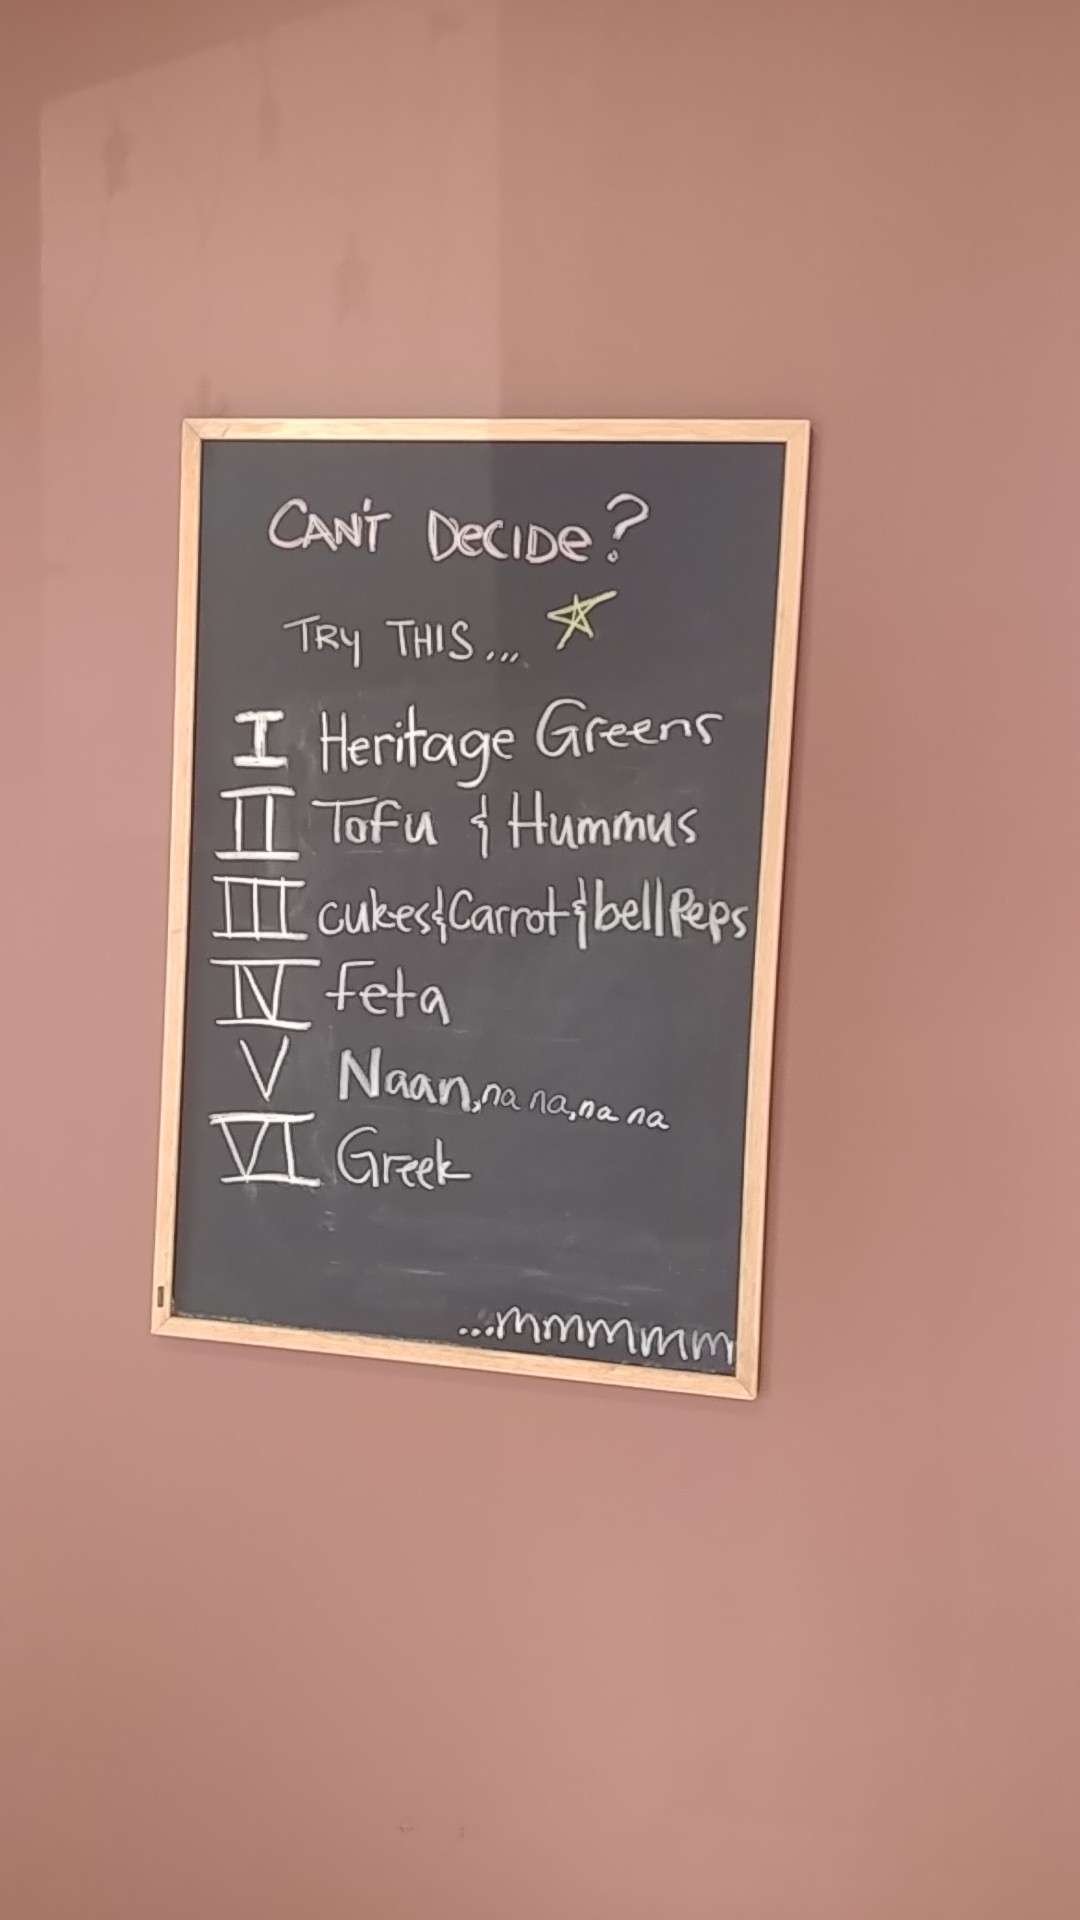 CAN'T DECIDE?
TRY THIS...
I Heritage Greens
II Tofu & Hummus
III cukes&Carrot&bell Peps
IV feta
V Naan, na na, na na
VI Greek
...mmmmm